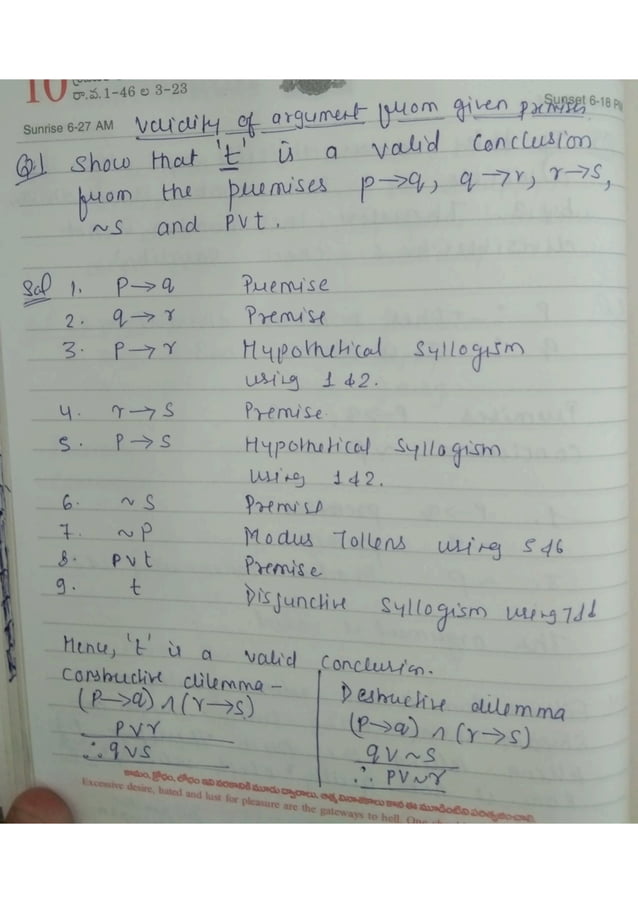 10
రా.వ.1-46 ల 3-23
Sunrise 6-27 AM
Sunset 6-18 PM
Validity of argument from given premises
Q.1 Show that 't' is a valid conclusion
from the premises p→q, q→r, r→s,
~s and pvt.
Sol 1. P→q Premise
2. q→r Premise
3. P→r Hypothetical Syllogism
using 1 & 2.
4. r→s Premise.
5. P→s Hypothetical Syllogism
using 1 & 2.
6. ~s Premise
7. ~p Modus Tollens using 5 & 6
8. pvt Premise
9. t Disjunctive Syllogism using 7 &
Hence, 't' is a valid conclusion.
Constructive dilemma -
(P→q) ∧ (r→s)
pvr
∴ qvs
Destructive dilemma
(P→q) ∧ (r→s)
qv~s
∴ pv~r
Excessive desire, hatred and lust for pleasure are the gateways to hell. One